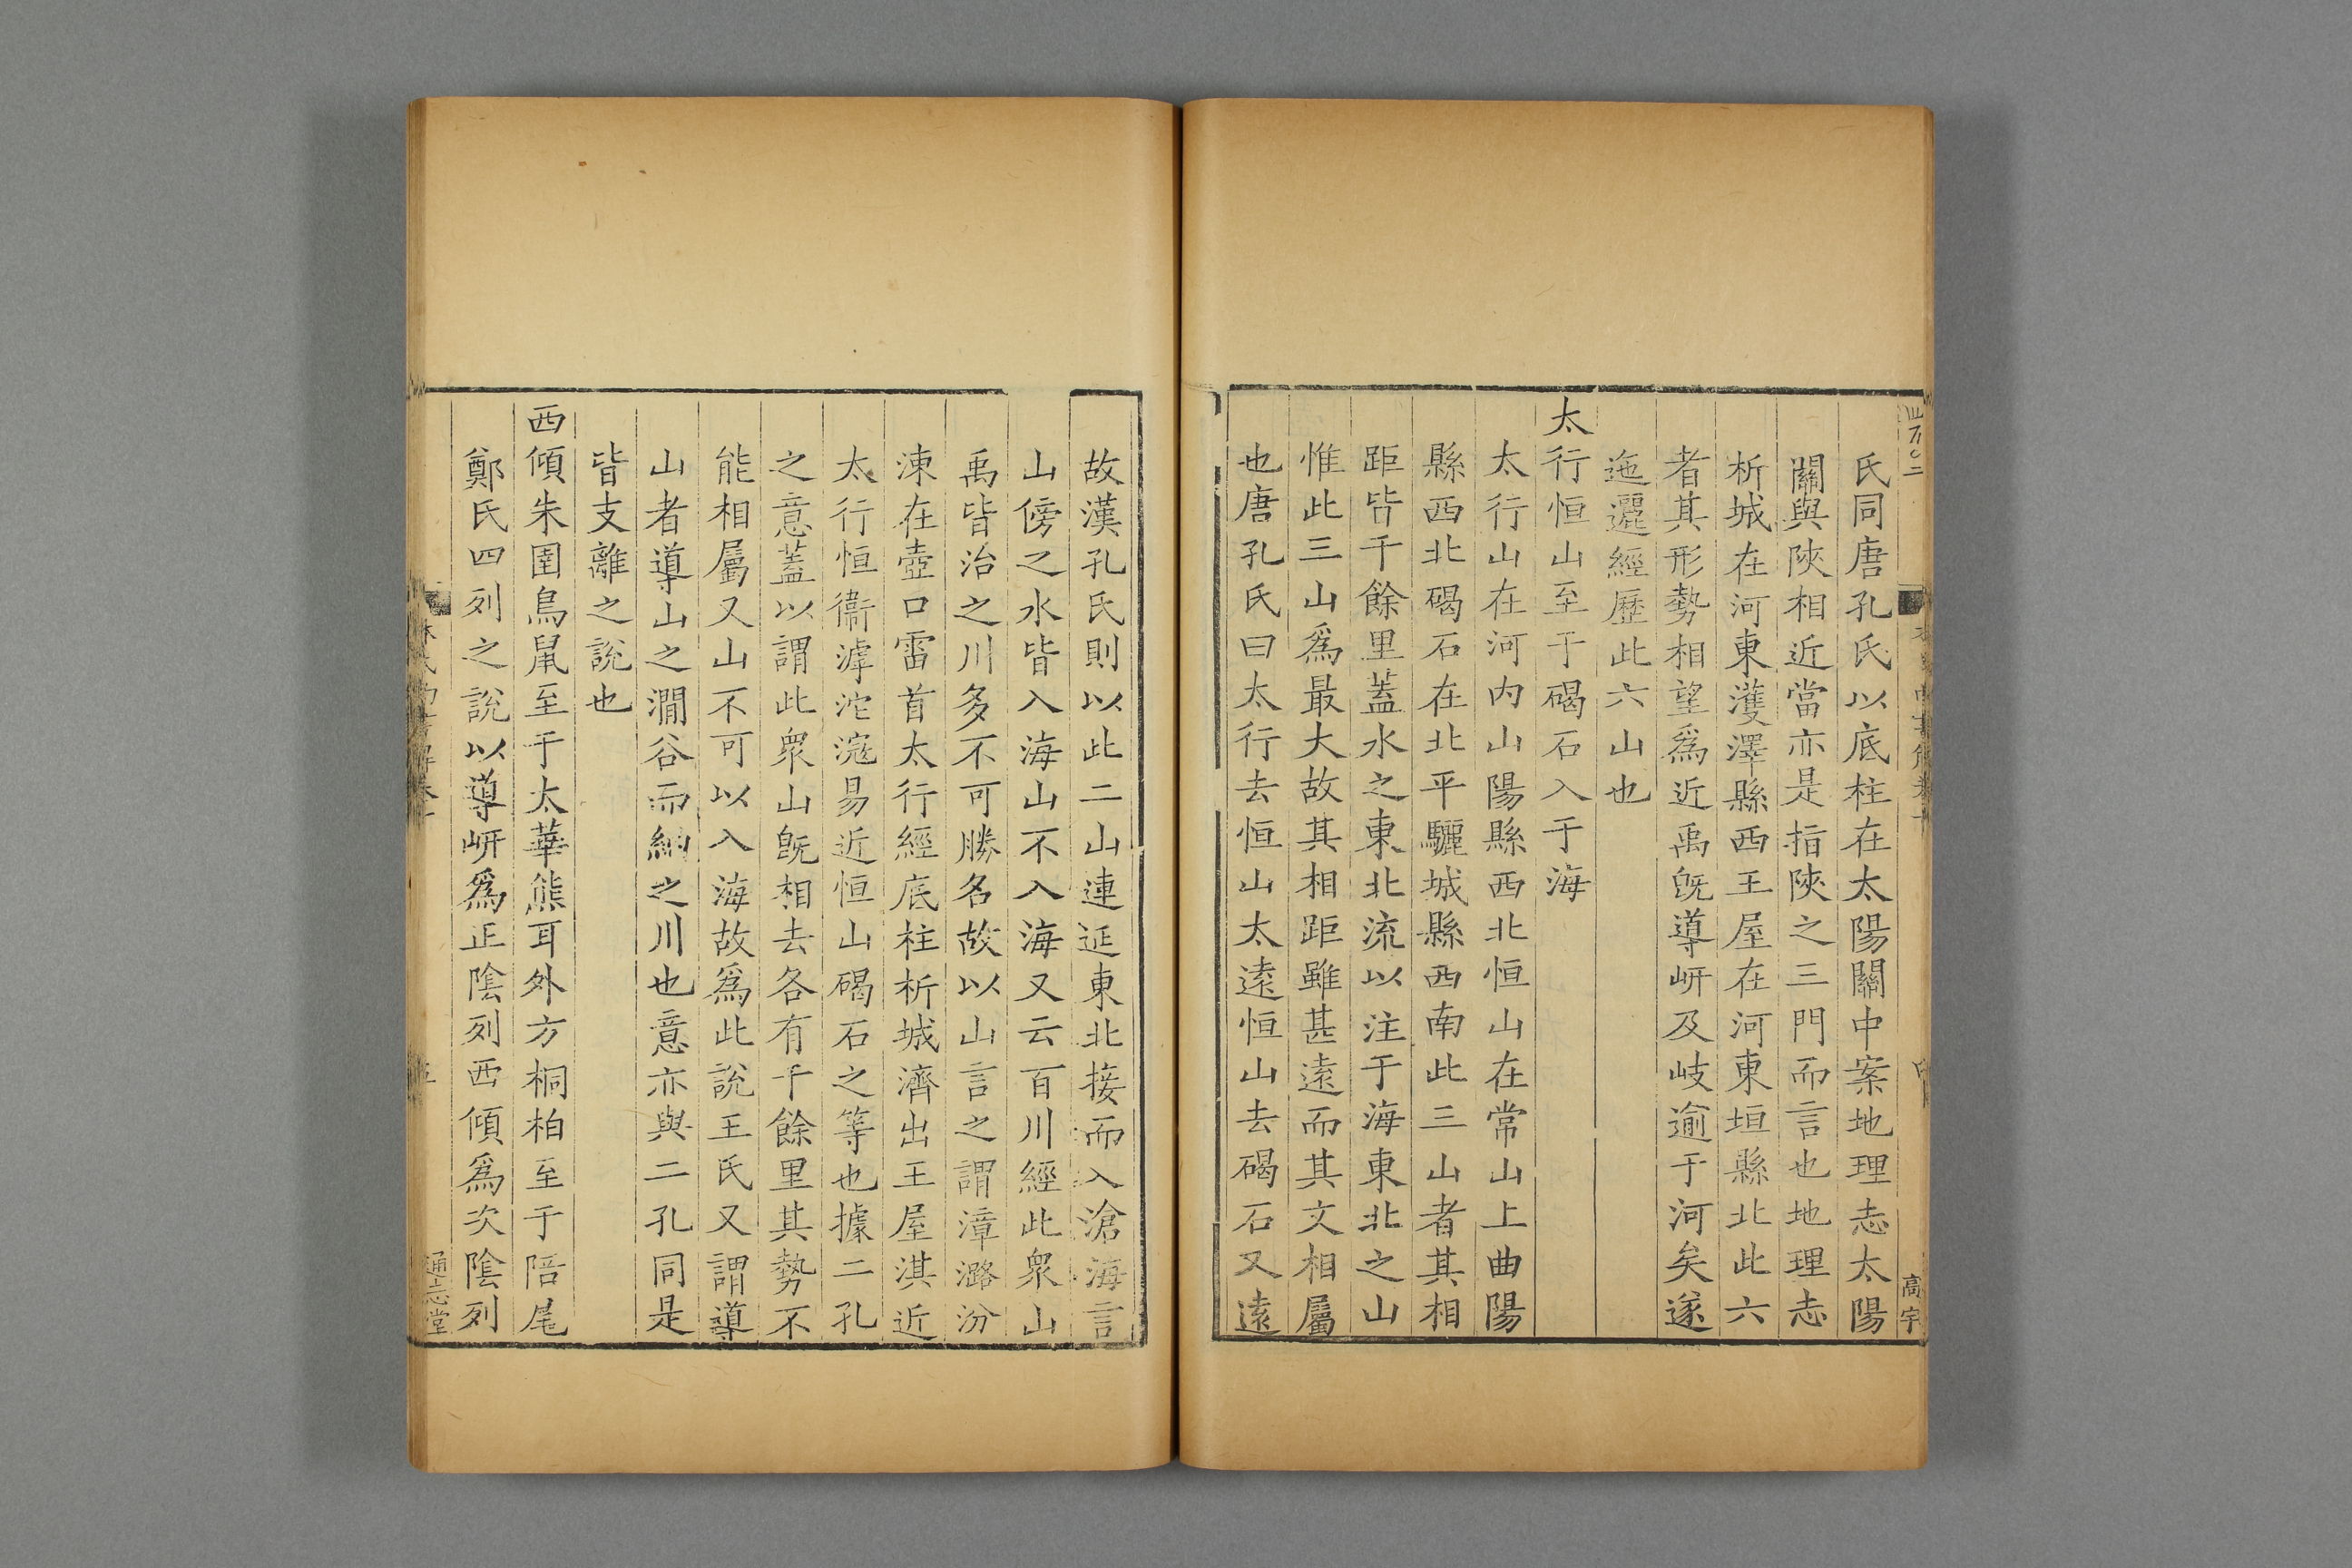 氏同唐孔氏以底柱在太陽關中案地理志太陽
關與陝相近當亦是指陝之三門而言也地理志
析城在河東濩澤縣西王屋在河東垣縣北此六
者其形勢相望爲近禹旣導岍及岐逾于河矣遂
迤邐經歷此六山也
太行恒山至于碣石入于海
太行山在河內山陽縣西北恒山在常山上曲陽
縣西北碣石在北平驪城縣西南此三山者其相
距皆千餘里蓋水之東北流以注于海東北之山
惟此三山爲最大故其相距雖甚遠而其文相屬
也唐孔氏曰太行去恒山太遠恒山去碣石又遠
高宇
故漢孔氏則以此二山連延東北接而入滄海言
山傍之水皆入海山不入海又云百川經此衆山
禹皆治之川多不可勝名故以山言之謂漳潞汾
涑在壺口雷首太行經底柱析城濟出王屋淇近
太行恒衞滹沱滱易近恒山碣石之等也據二孔
之意蓋以謂此衆山旣相去各有千餘里其勢不
能相屬又山不可以入海故爲此說王氏又謂導
山者導山之澗谷而納之川也意亦與二孔同是
皆支離之說也
西傾朱圉鳥鼠至于太華熊耳外方桐柏至于陪尾
鄭氏四列之說以導岍爲正陰列西傾爲次陰列
通志堂